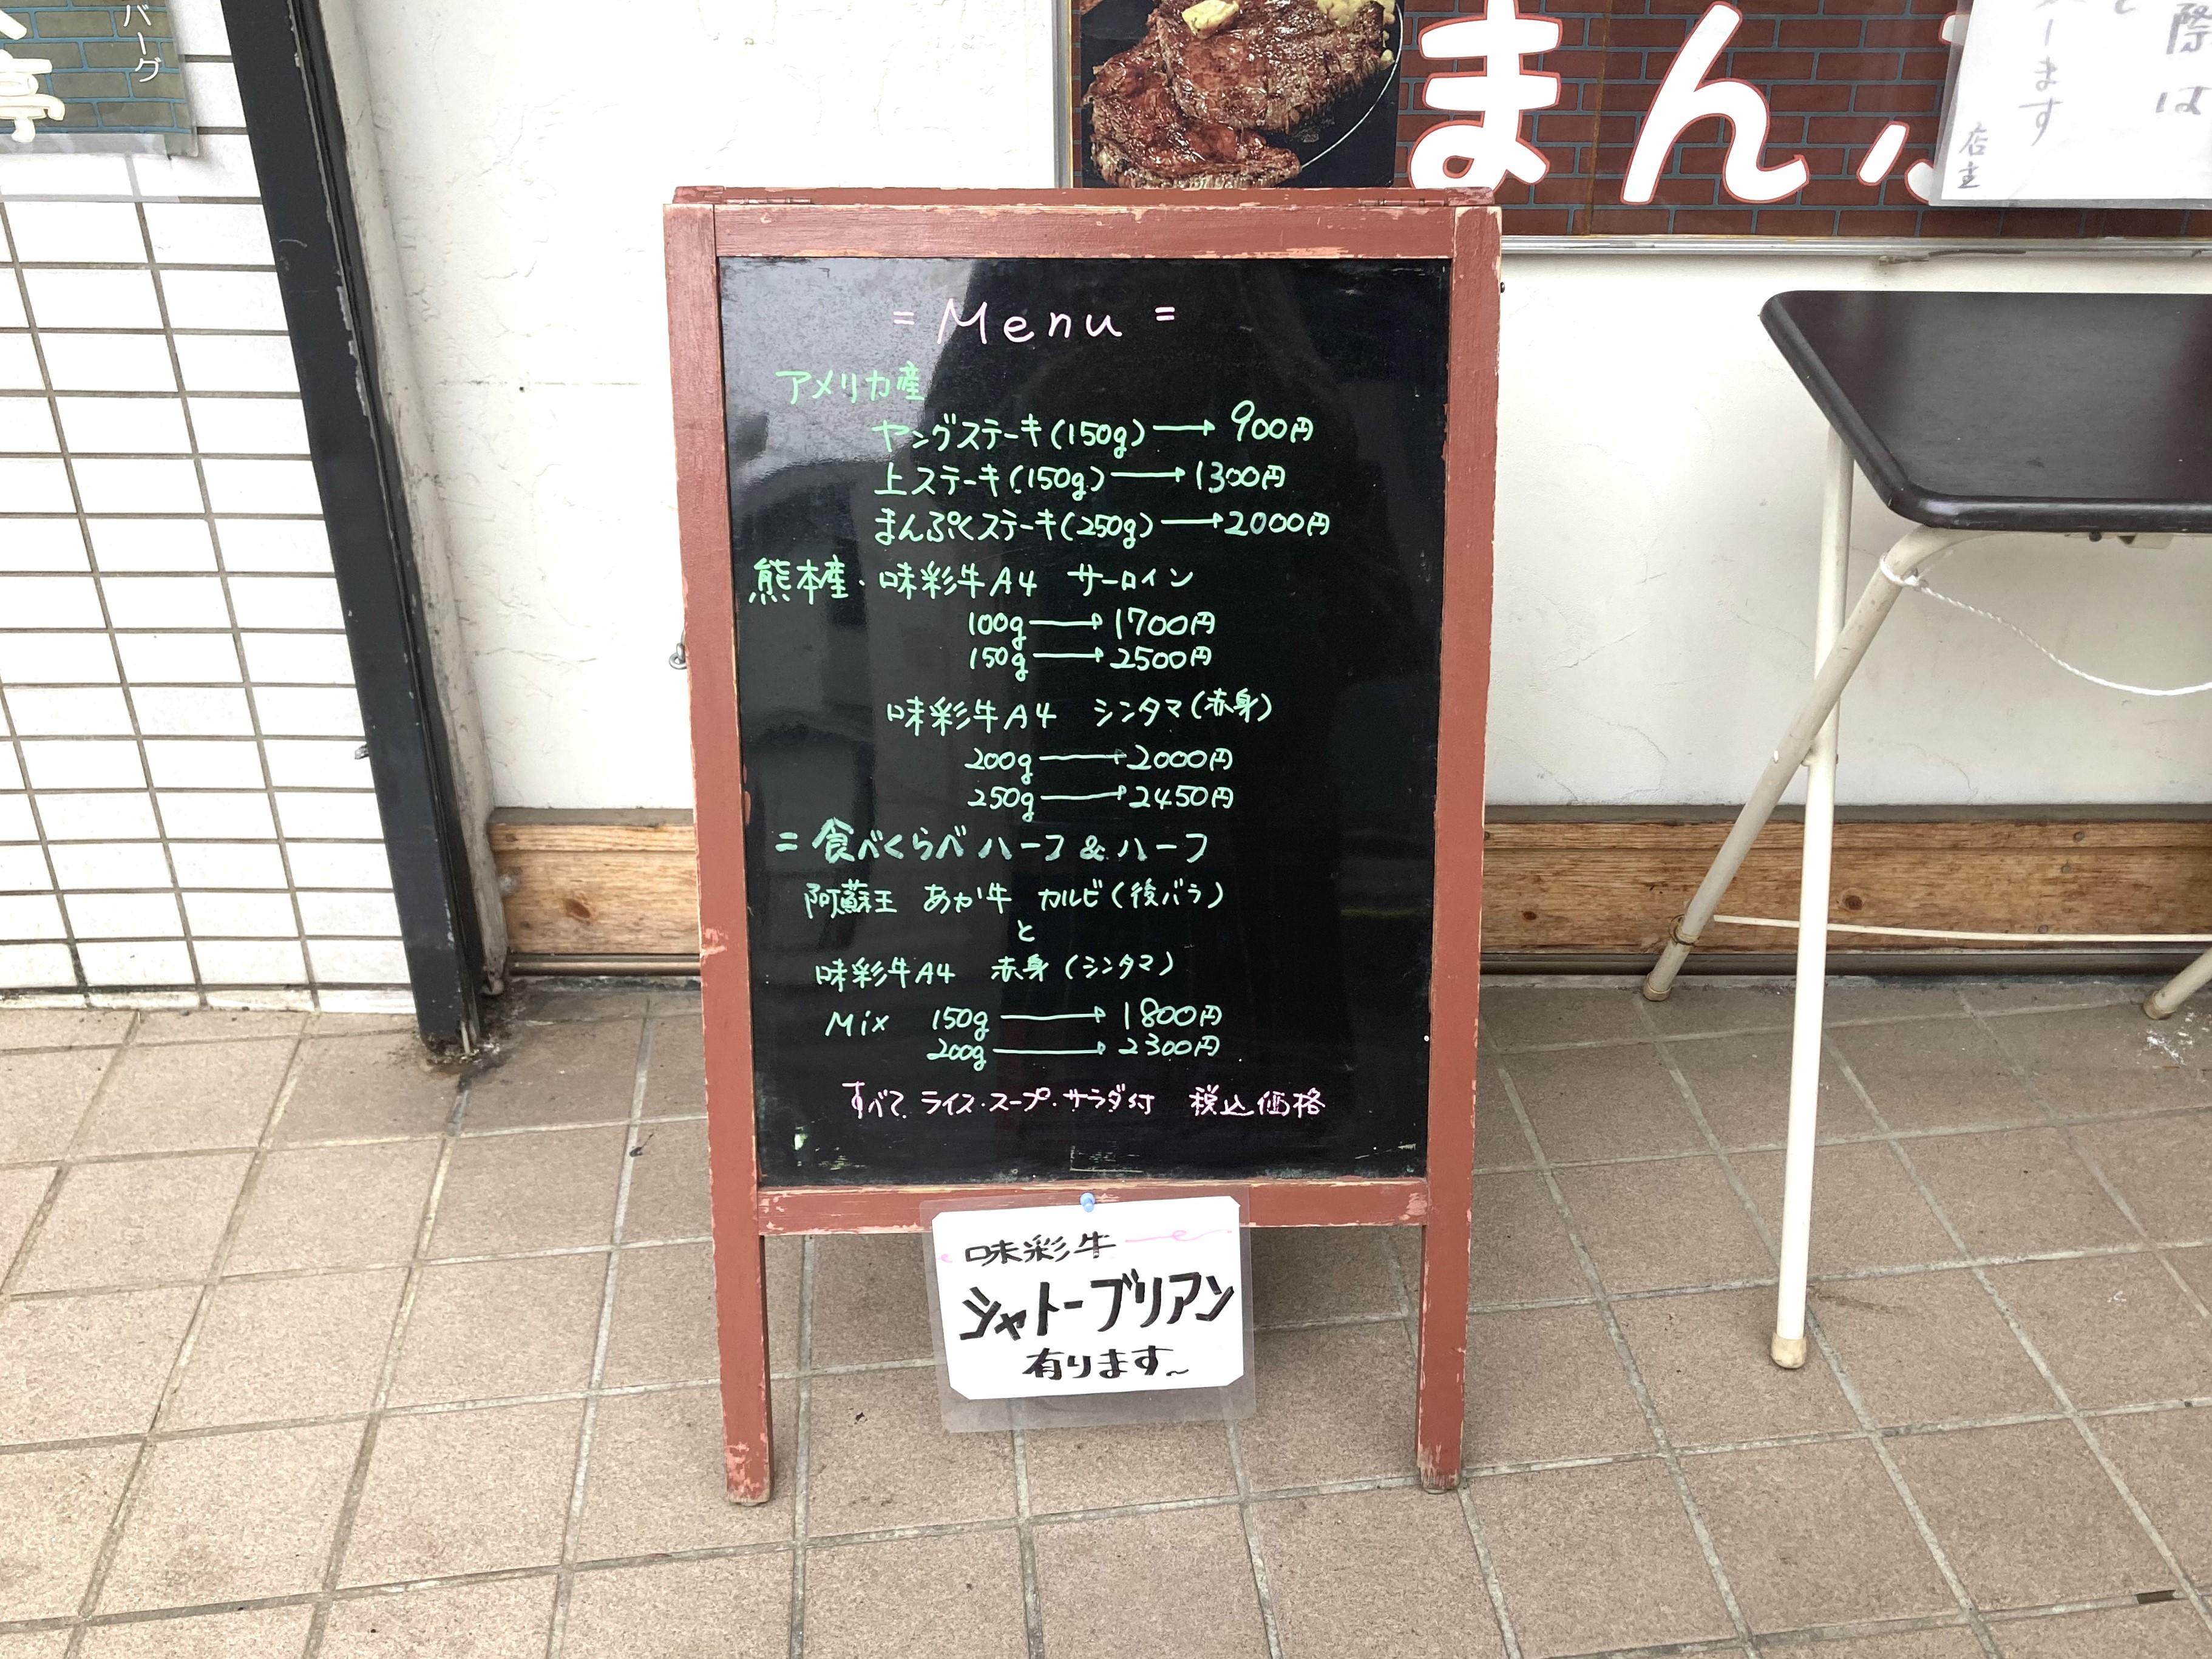 バーグ
亭
まんぷ
際は
ます
店主
= Menu =
アメリカ産
ヤングステーキ(150g)→900円
上ステーキ(150g)→1300円
まんぷくステーキ(250g)→2000円
熊本産・味彩牛A4 サーロイン
100g→1700円
150g→2500円
味彩牛A4 シンタマ(赤身)
200g→2000円
250g→2450円
=食べくらべ ハーフ&ハーフ
阿蘇王 あか牛 カルビ(後バラ)
と
味彩牛A4 赤身(シンタマ)
Mix 150g→1800円
200g→2300円
すべて ライス・スープ・サラダ付 税込価格
味彩牛
シャトーブリアン
有ります~